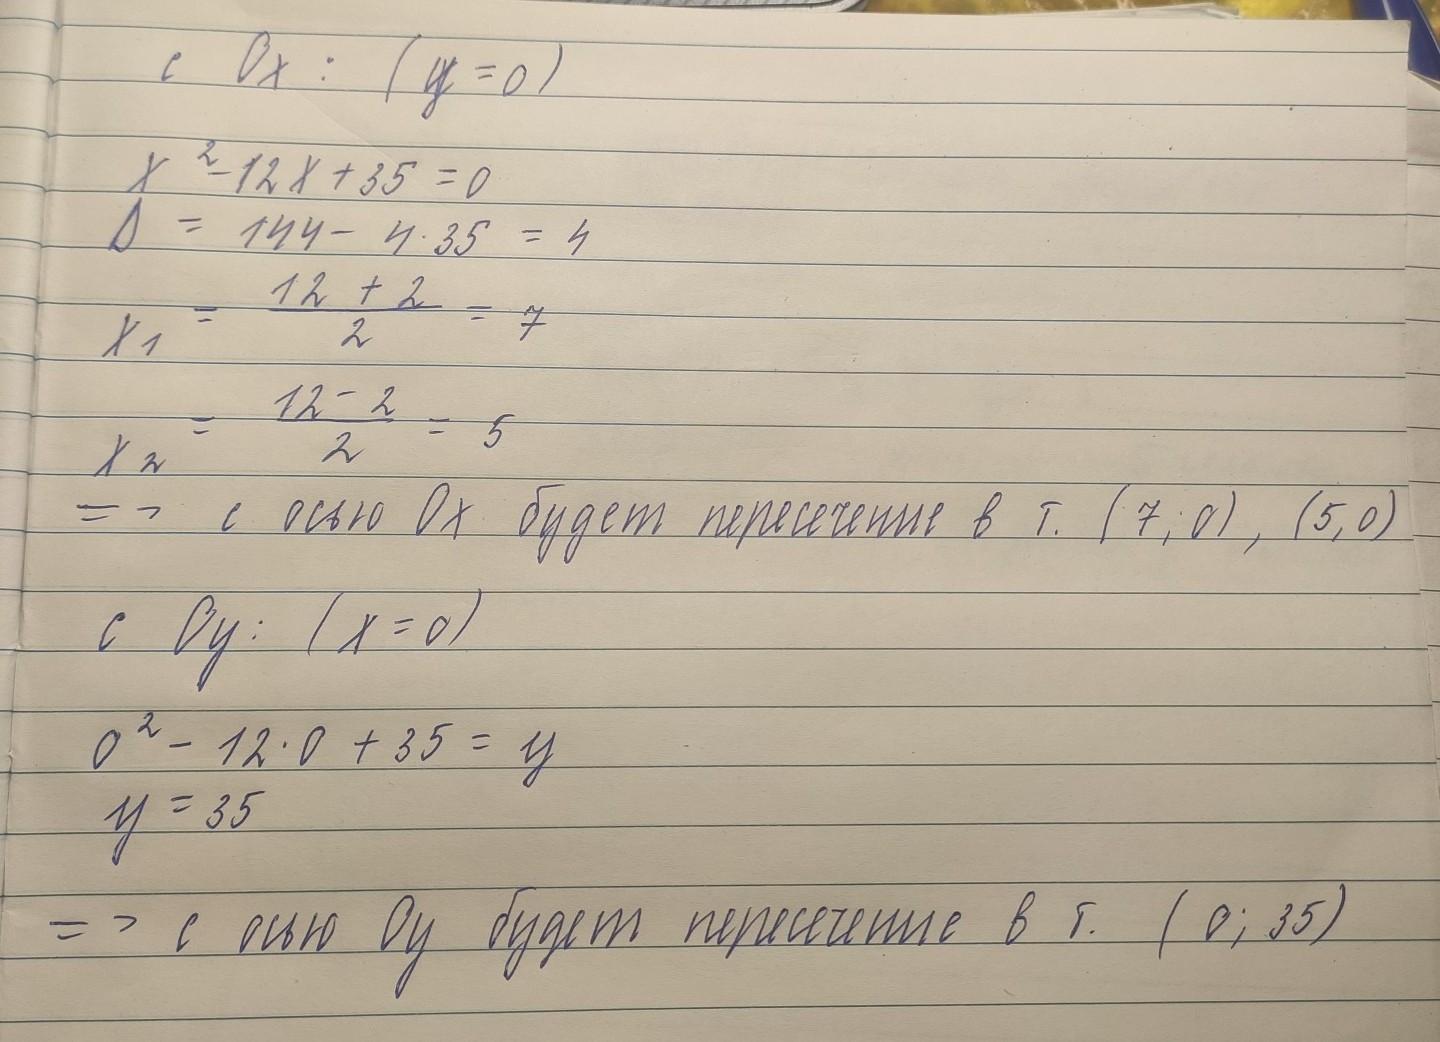 с Ox: (y=0)
x²-12x+35=0
D = 144 - 4·35 = 4
x1 = (12 + 2)/2 = 7
x2 = (12 - 2)/2 = 5
=> с осью Ox будет пересечение в т. (7; 0), (5,0)
с Oy: (x=0)
0² - 12·0 + 35 = y
y = 35
=> с осью Oy будет пересечение в т. (0; 35)